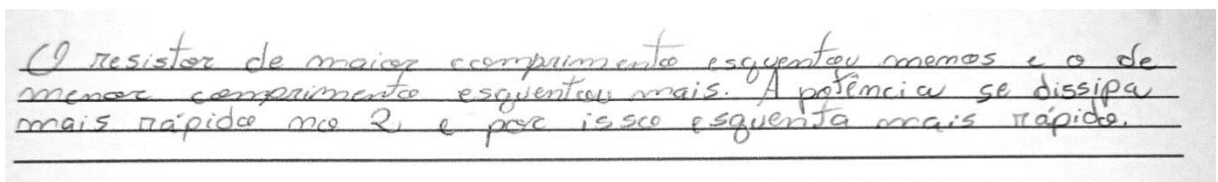 O resistor de maior comprimento esquentou menos e o de
menor comprimento esquentou mais. A potência se dissipa
mais rápido no 2 e por isso esquenta mais rápido.